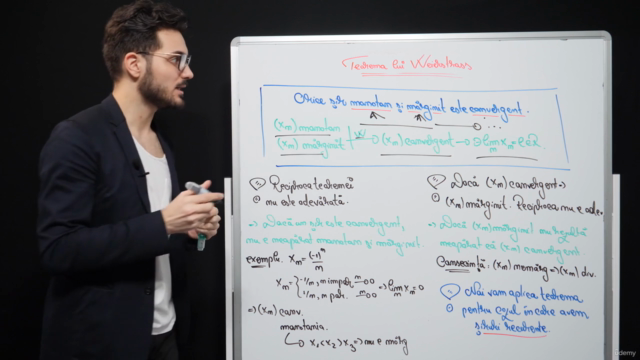 Teorema lui Weierstrass
Orice șir monoton și mărginit este convergent.
(xn) monoton
(xn) mărginit
W
(xn) convergent → ∃ lim xn = l ∈ ℝ
n
Reciproca teoremei
nu este adevărată.
⇒ Dacă un șir este convergent,
nu e neapărat monoton și mărginit
exemplu: xn = (-1)^n/n
xn = { -1/n, n impar →0
1/n, n par. →0
⇒ lim xn = 0
n
⇒ (xn) conv.
monotonia.
x1 < x2 > x3 ⇒ nu e
Dacă (xn) convergent ⇒
(xn) mărginit. Reciproca nu e adev.
⇒ Dacă (xn) mărginit nu rezultă
neapărat că (xn) convergent
Consecință: (xn) nemărg ⇒ (xn) div.
Noi vom aplica teorema
pentru cazul în care avem
șiruri recurente.
udemy